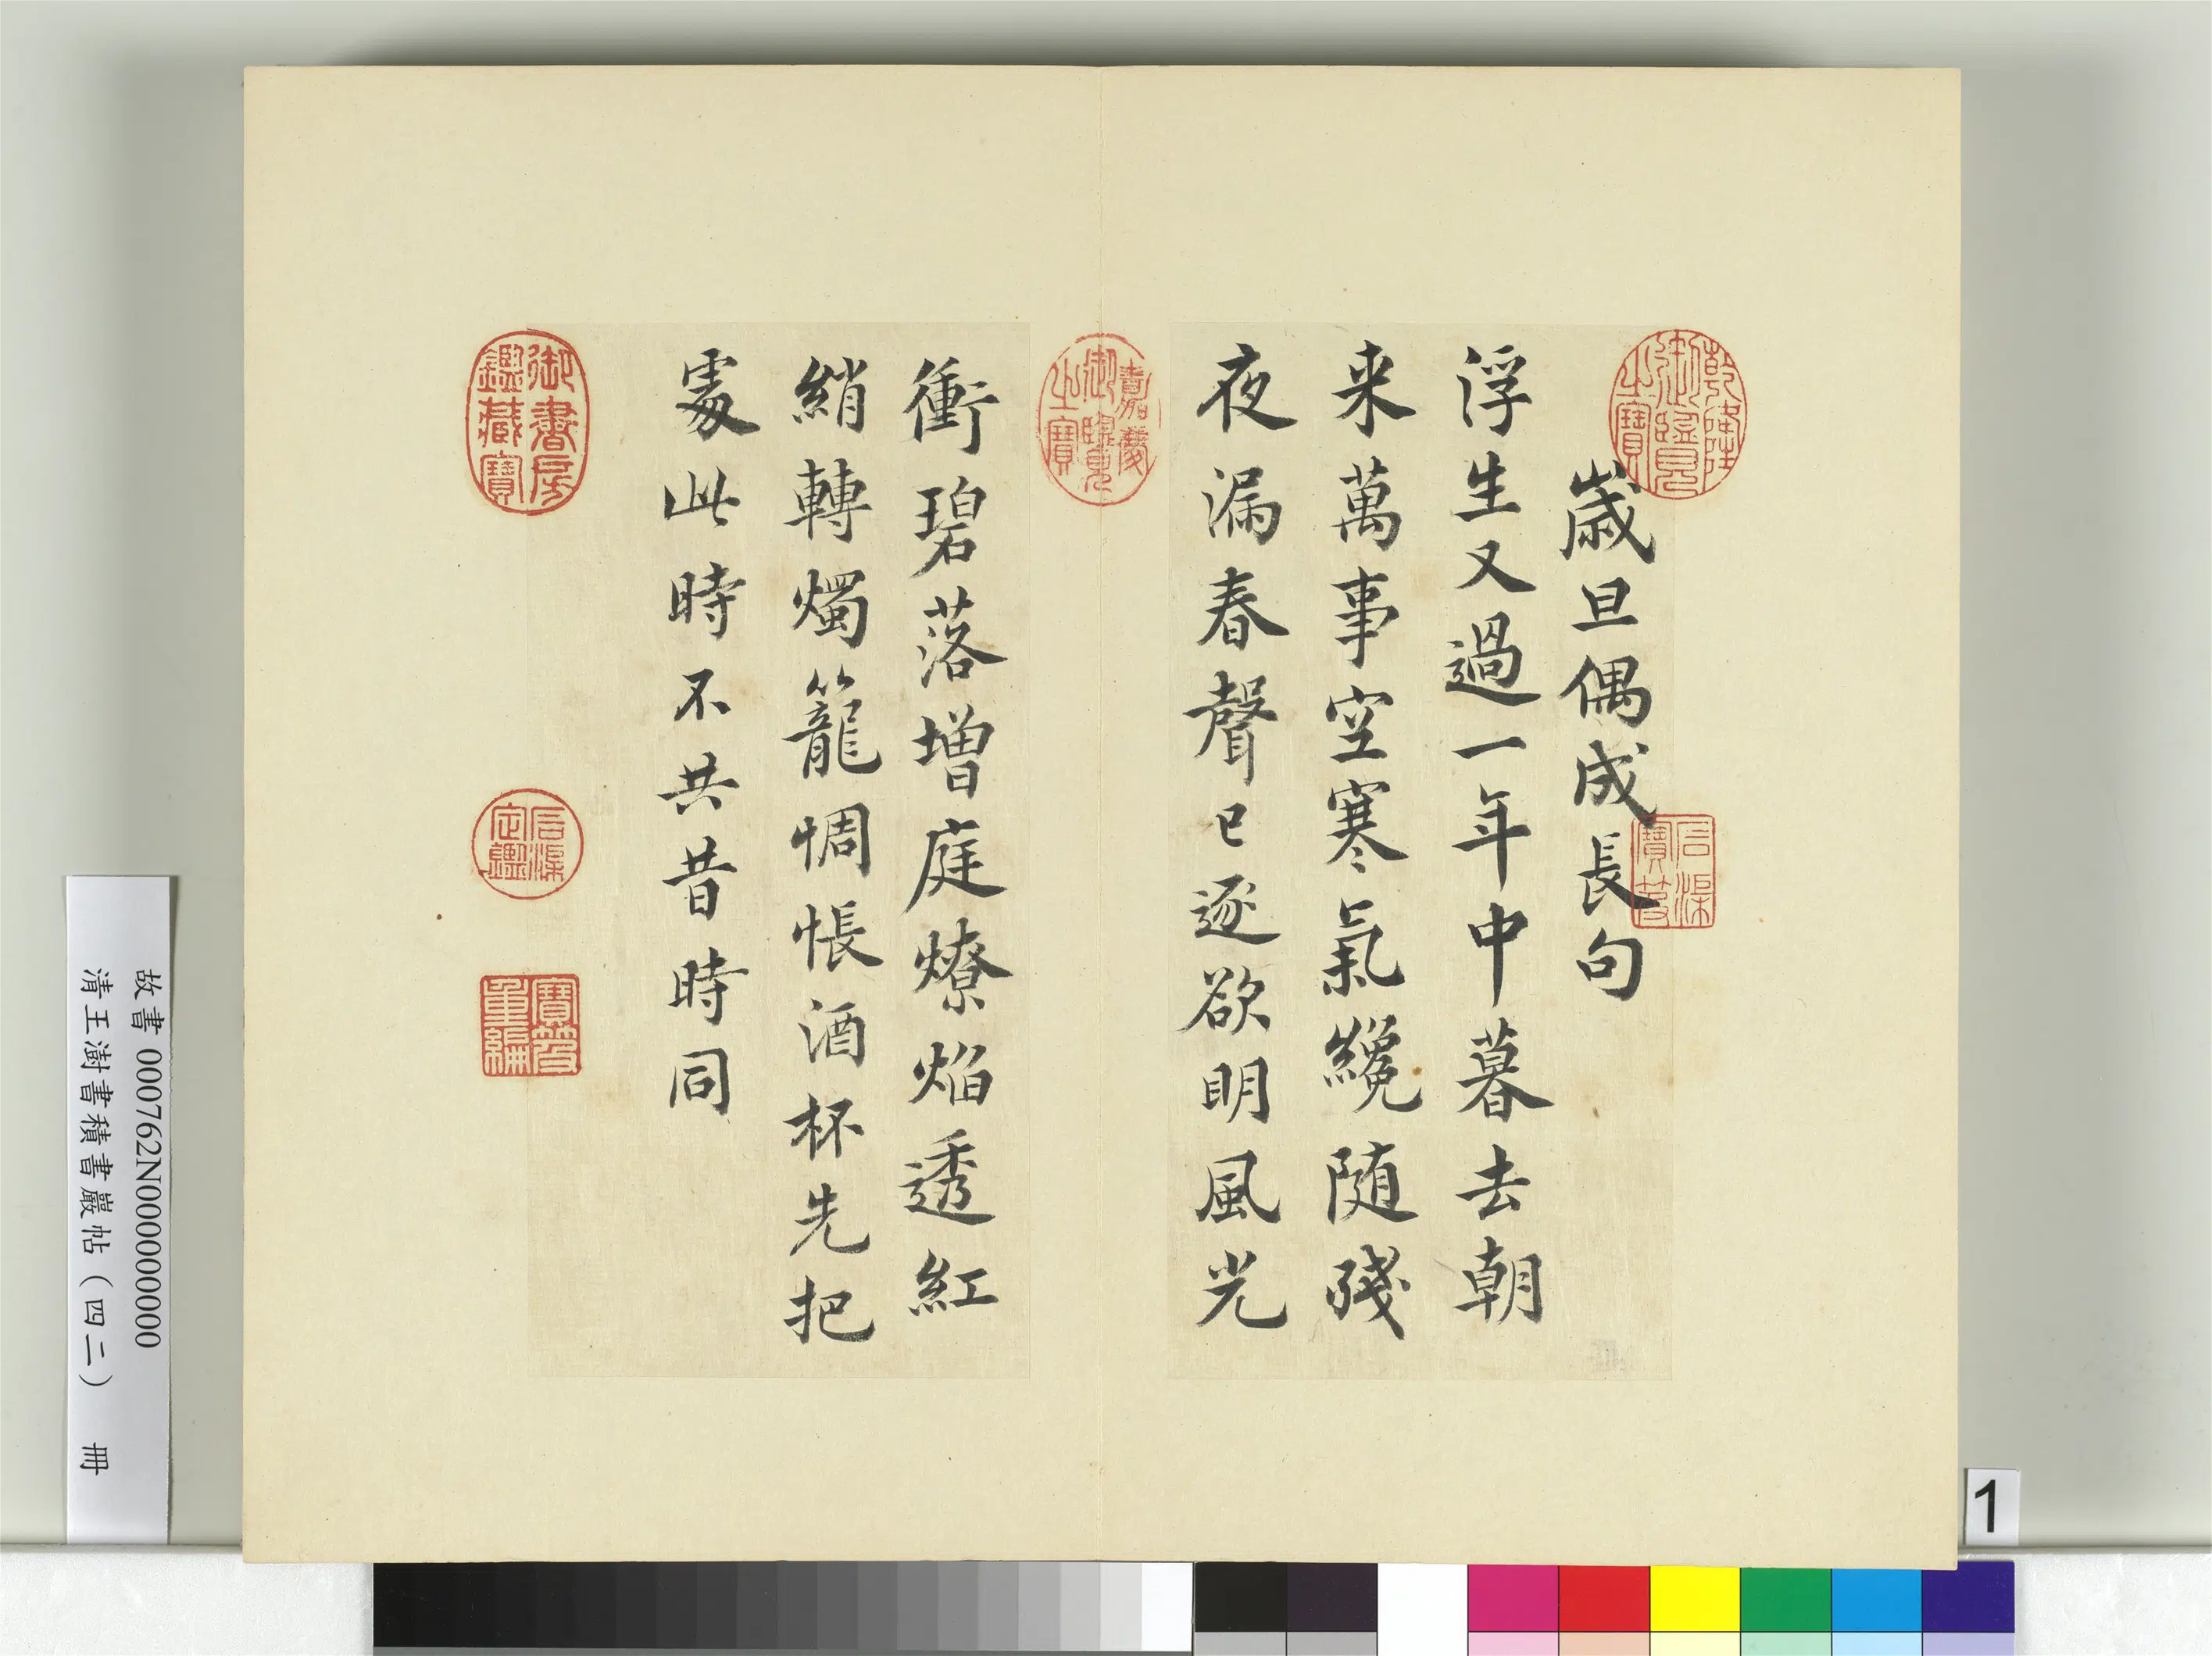 歲旦偶成長句
浮生又過一年中暮去朝
来萬事空寒氣纔随殘
夜漏春聲已逐欲明風光
衝碧落增庭燎焰透紅
綃轉燭籠惆悵酒杯先把
處此時不共昔時同
乾隆御覽之寶
石渠寶笈
嘉慶御覽之寶
御書房鑑藏寶
石渠定鑑
寶笈重編
故書 000762N000000000
清王澍書積書巖帖（四二） 冊
1